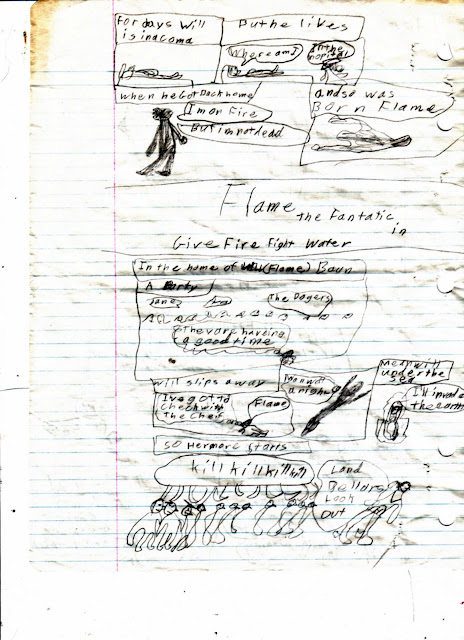 For days Will
is in a coma
But he lives
Where am I
In the
hospital
when he Got Back home
I'm on Fire
But i'm not dead
and so was
Born Flame
Flame
the Fantatic
in
Give Fire Fight Water
In the home of (Flame) Baun
A Party
The Dogers
a good time
will slips away
I've got to
check with
The Cheif
Flame
under the
Sea
I'll invade
the earth
so Hermore starts
kill kill kill kill
Land
Look
Out